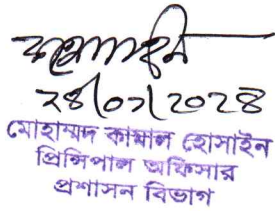 ২৪/০৭/২০২৪
মোহাম্মদ কামাল হোসাইন
প্রিন্সিপাল অফিসার
প্রশাসন বিভাগ